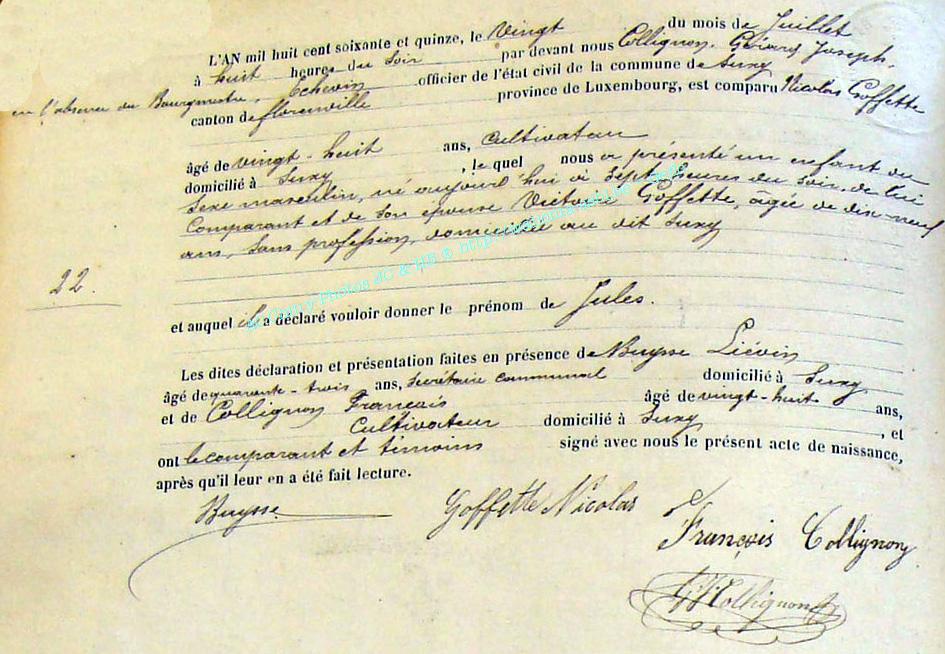 L'AN mil huit cent soixante et quinze, le Vingt du mois de Juillet
à huit heures du soir par devant nous Collignon, Gérard Joseph,
en l'absence du Bourgmestre, Echevin officier de l'état civil de la commune de Suxy
canton de florenville province de Luxembourg, est comparu Nicolas Goffette
âgé de vingt-huit ans, cultivateur
domicilié à Suxy, le quel nous a présenté un enfant du
Sexe masculin, né aujourd'hui à Sept heures du Soir, de lui
Comparant et de Son épouse Victoire Goffette, âgée de dix-neuf
ans, Sans profession, domiciliée au dit Suxy
22.
et auquel il a déclaré vouloir donner le prénom de Jules.
Les dites déclaration et présentation faites en présence de Buysse Liévin
âgé de quarante-trois ans, Secrétaire communal domicilié à Suxy
et de Collignon François âgé de vingt-huit ans,
Cultivateur domicilié à Suxy, et
ont le comparant et témoins signé avec nous le présent acte de naissance,
après qu'il leur en a été fait lecture.
Buysse Goffette Nicolas
François Collignon
Collignon